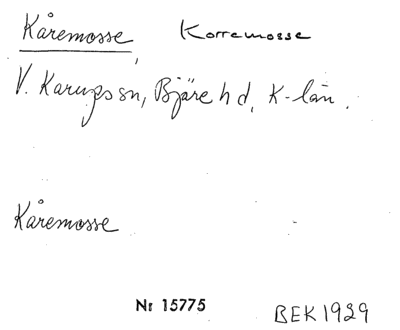 Kåremosse Korremosse
V. Karups sn, Bjäre hd, K-län.
Kåremosse
Nr 15775 BEK 1929